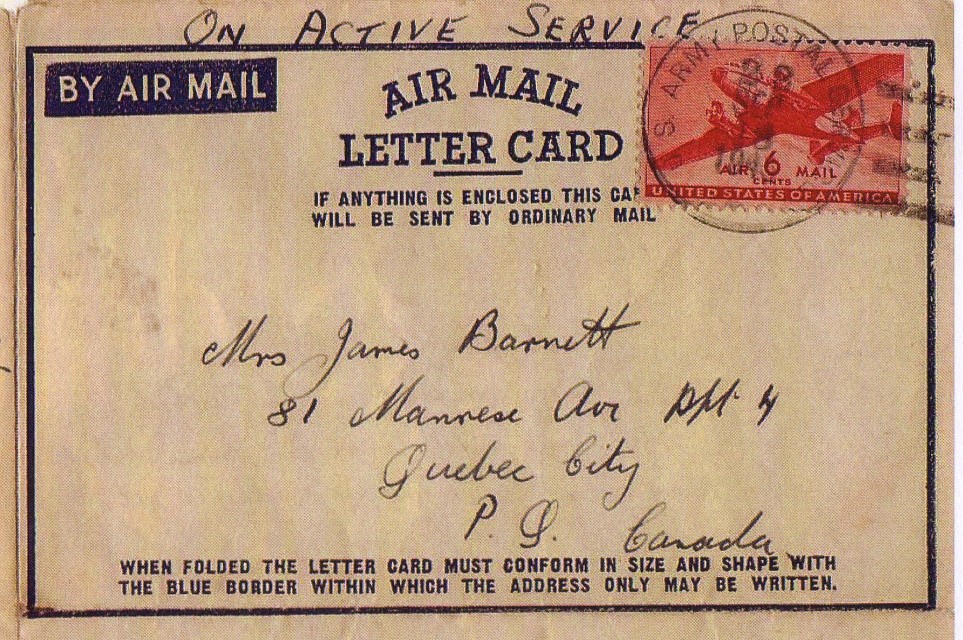 ON ACTIVE SERVICE
BY AIR MAIL
AIR MAIL
LETTER CARD
IF ANYTHING IS ENCLOSED THIS CA
WILL BE SENT BY ORDINARY MAIL
U.S. ARMY POSTAL
AIR 6 MAIL
CENTS
UNITED STATES OF AMERICA
Mrs James Barnett
81 Manrese Ave Apt. 4
Quebec City
P. Q. Canada
WHEN FOLDED THE LETTER CARD MUST CONFORM IN SIZE AND SHAPE WITH
THE BLUE BORDER WITHIN WHICH THE ADDRESS ONLY MAY BE WRITTEN.